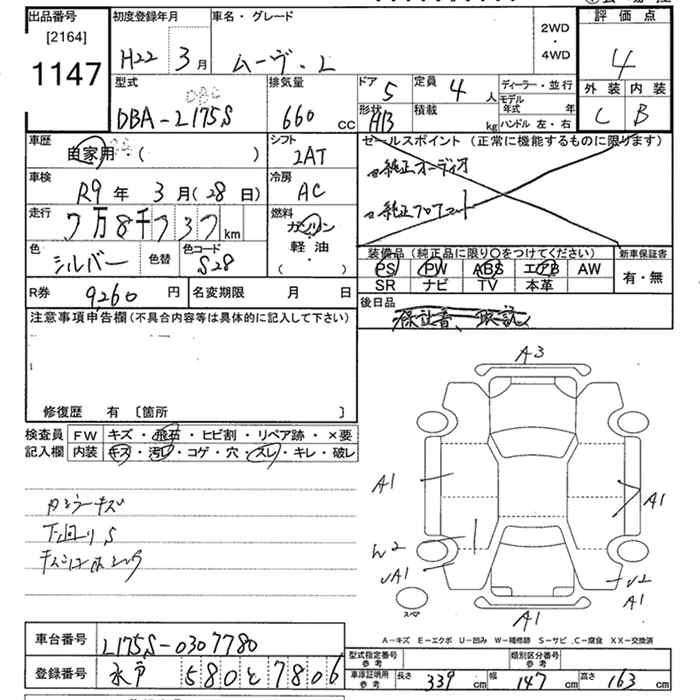 出品番号 初度登録年月 車名・グレード 2WD・4WD 評価点
[2164]
1147
H22年 3月 ムーヴ・L 4
型式 排気量 ドア 5 定員 4人 ディーラー・並行 外装 内装
DBA-L175S 660cc 形状 HB 積載 kg モデル年式 年 C B
ハンドル 左・右
車歴 自家用・( ) シフト 2AT セールスポイント (正常に機能するものに限ります)
純正オーディオ
車検 R9年 3月(28日) 冷房 AC
純正フロアマット
走行 7万8千737km 燃料 ガソリン・軽油・( )
色 シルバー 色替 色コード S28
装備品 (純正品に限り○をつけてください) 新車保証書
PS PW ABS エアB AW 有・無
SR ナビ TV 本革
R券 9260円 名変期限 月 日
後日品
保証書、取説
注意事項申告欄(不具合内容等は具体的に記入して下さい)
修復歴 有 〔箇所 〕
検査員 FW キズ・飛石・ヒビ割・リペア跡・×要
記入欄 内装 キズ・汚レ・コゲ・穴・スレ・キレ・破レ
下回りS
A3
A1
A1
W2
A1
A1
スペア
A1
A-キズ E-エクボ U-凹み W-補修跡 S-サビ C-腐食 XX-交換済
車台番号 L175S-0307780
登録番号 水戸 580 と 7806
型式指定番号 参考 類別区分番号 参考
車庫証明用 参考 長さ 339cm 幅 147cm 高さ 163cm